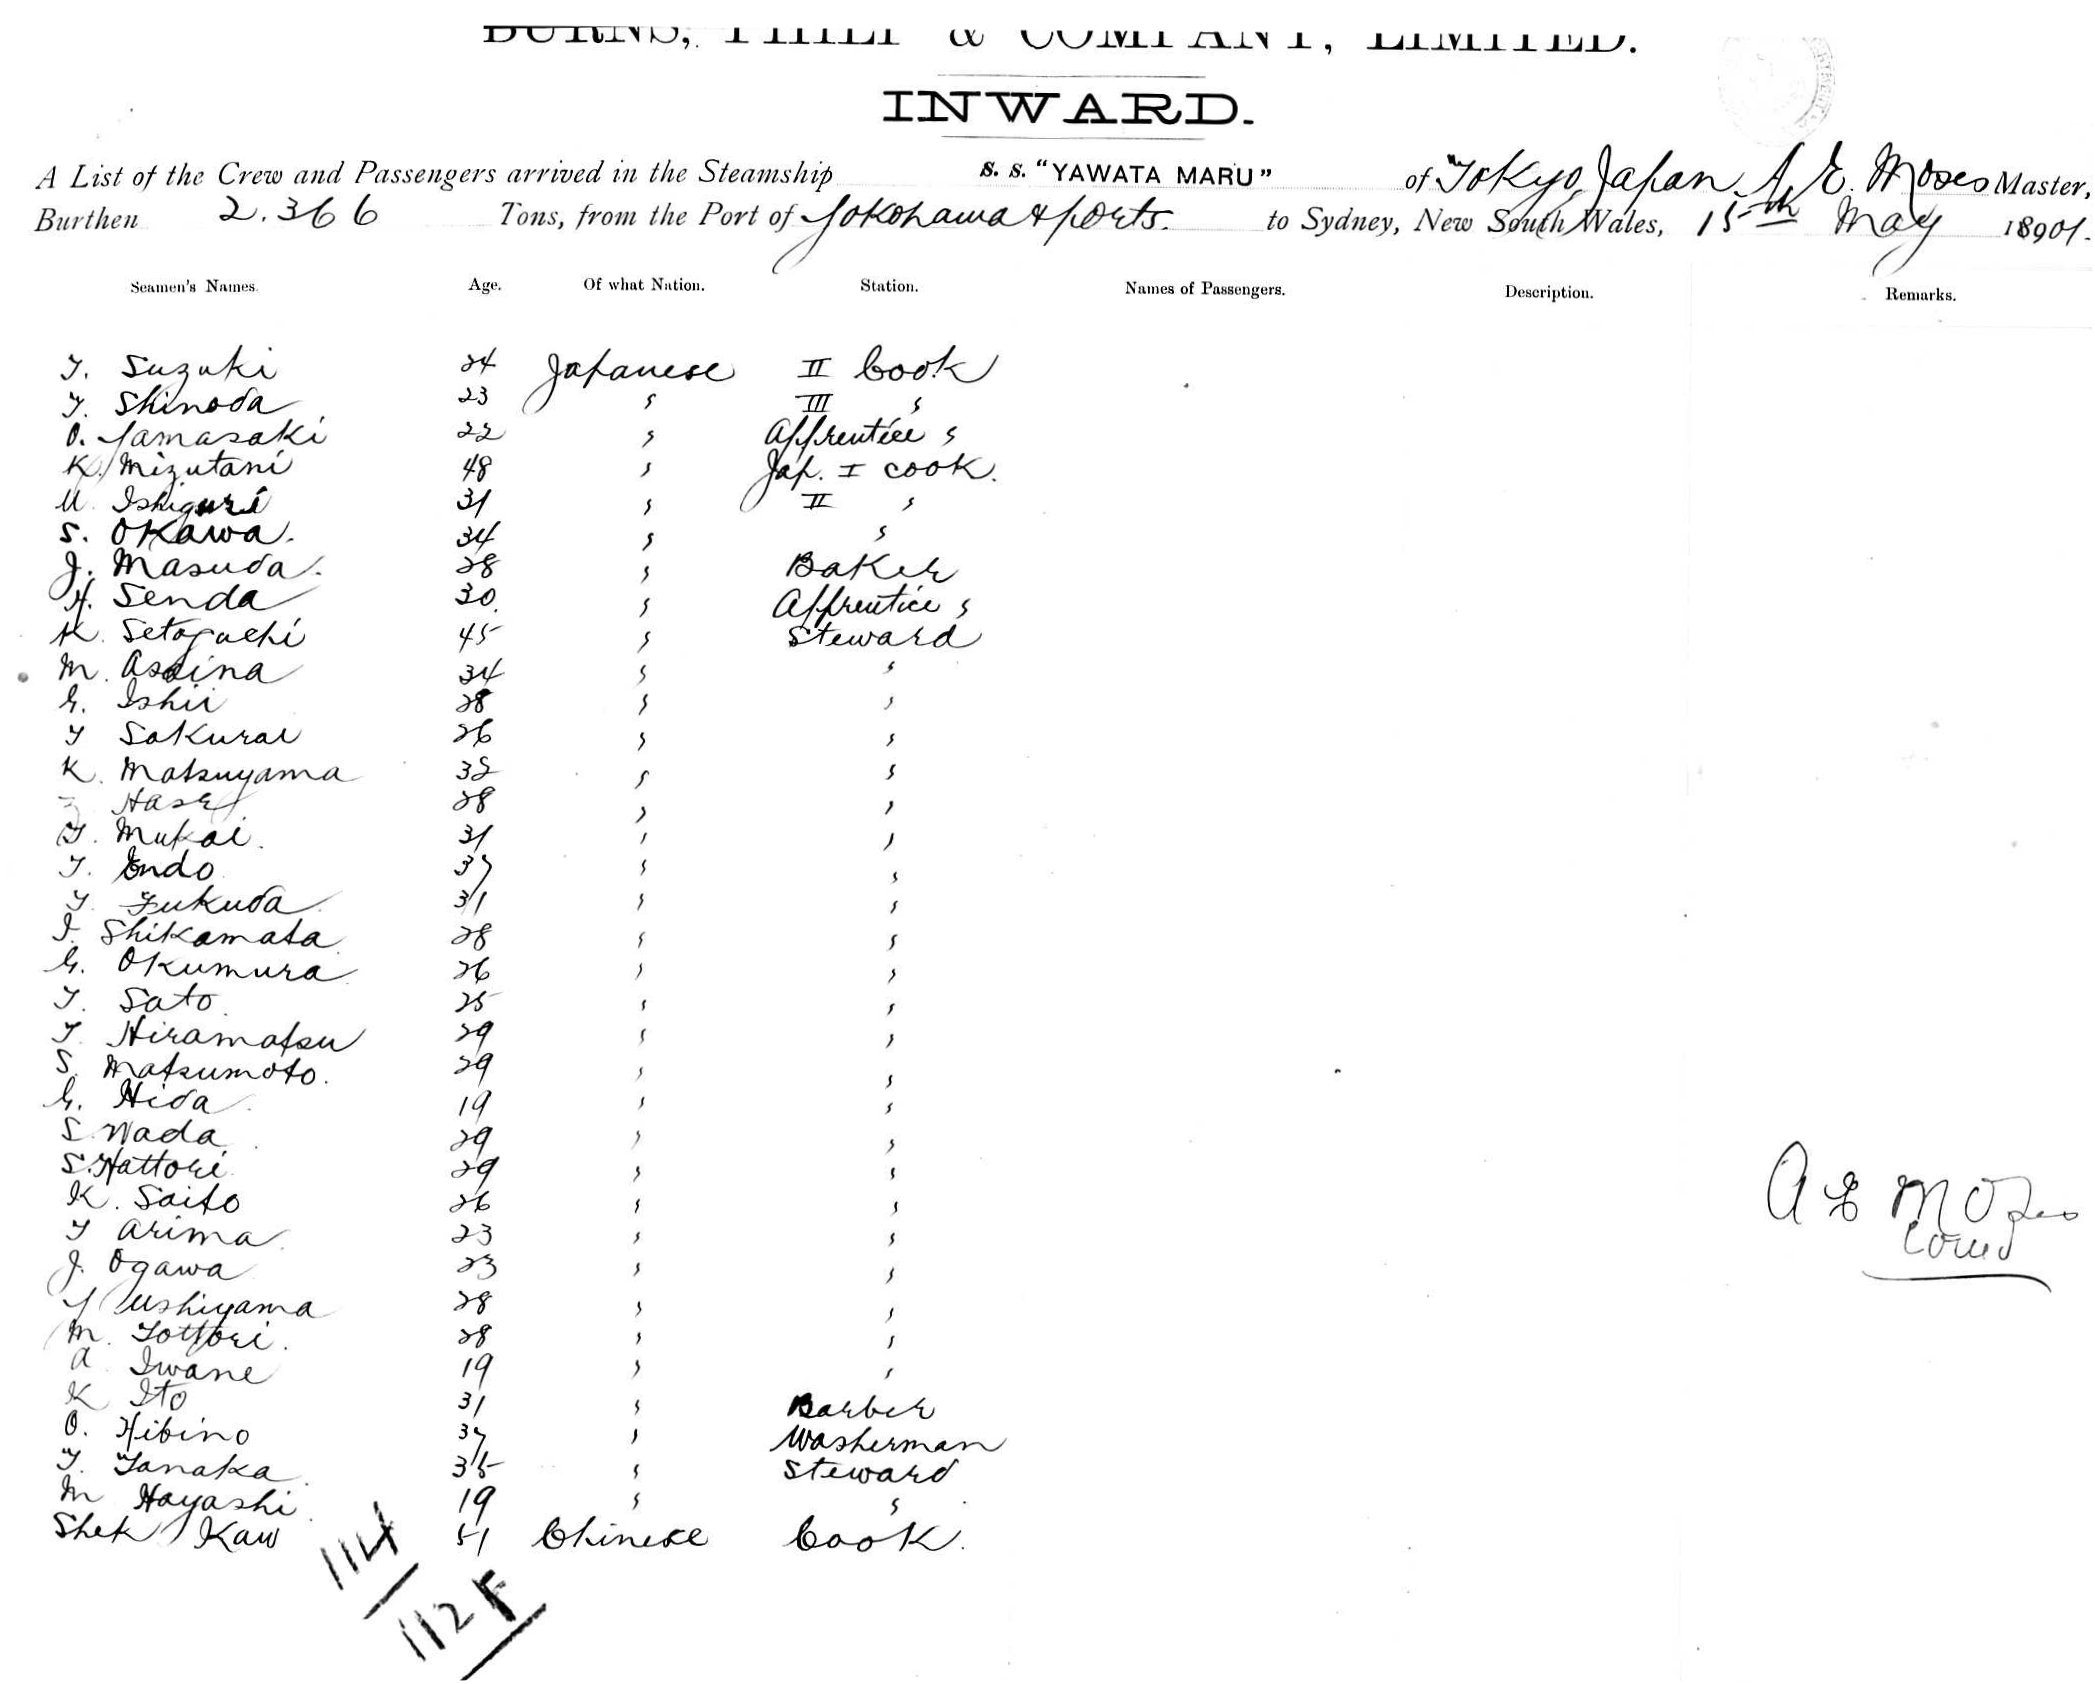 BURNS, PHILP & COMPANY, LIMITED.
INWARD.
A List of the Crew and Passengers arrived in the Steamship S. S. "YAWATA MARU" of Tokyo Japan, A. E. Moses Master,
Burthen 2.366 Tons, from the Port of Yokohama & ports. to Sydney, New South Wales, 15th May 18901.
Seamen's Names. Age. Of what Nation. Station. Names of Passengers. Description. Remarks.
T. Suzuki 24 Japanese II Cook
T. Shinoda 23 " III "
O. Yamasaki 22 " Apprentice "
K. Mizutani 48 " Jap. I cook.
U. Ishiguri 31 " II "
S. Okawa. 34 " "
J. Masuda. 28 " Baker
H. Senda 30. " Apprentice "
K. Setoguchi 45 " Steward
M. Asaina 34 " "
G. Ishii 28 " "
T Sakurai 26 " "
K. Matsuyama 32 " "
Hase 28 " "
T. Mukai. 31 " "
T. Endo 37 " "
T. Fukuda. 31 " "
I. Shikamata 28 " "
G. Okumura 26 " "
T. Sato. 25 " "
T. Hiramatsu 29 " "
S. Matsumoto. 29 " "
G. Hida 19 " "
S. Wada 29 " "
S. Hattori 29 " "
K. Saito 26 " "
T Arima 23 " "
J. Ogawa 23 " "
Y Ushiyama 28 " "
M. Tottori. 28 " "
A Iwane 19 " "
K Ito 31 " Barber
O. Hibino 37 " Washerman
T. Tanaka 35 " Steward
M Hayashi 19 " "
Shek Kaw 51 Chinese Cook.
A E Moses
114
112 F